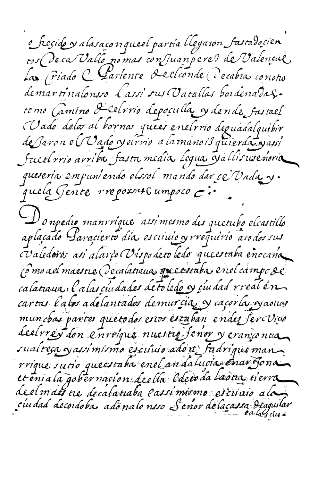 ofrecido y a la sazon que el partia llegaron fasta docien
tos De cavallo nomas con Juan pere3 de Valençue
la Criado e Pariente
de martin alonso. E assi sus Batallas hordenadas
tomo Camino del rrio de poculla y dende fasta el
Vado delas albornos que es en el rrio de guadalquibir
dejaron el Vado y el rrio a la mano ysquierda y assi
fue el rrio arriba fasta media legua y alli su señoria
queseria empuniendo el sol mando dar ce Vada y
que la Gente rreposase un poco
Don pedio manrrique assi mesmo dis que tubo el castillo
aplaçado Para cierto dia escriuio y rrequirio a todos sus
Valedores assi al arçoVispo de toledo que estaba en ocaña
Como al maestre de calatrava que estaba en el campo de
calatrava E a las ciudades de toledo y ciudad rreal en
cartas E a los adelantados de murcia y caçorla y a ouas
munchas partes que todos estos estaban en de Servicio
del rrey don enrrique nuestro Señor y eran contra
su alteça y assi mismo escriuio a don fadrique man
rrique su tio que estaba en el andalucia en arjona
e tenia la gobernacion de ella E de toda la otra tierra
de el maestre de calatrava E assi mesmo escriuio a la
ciudad de cordoba a don alonso Señor de la cassa de aguilar